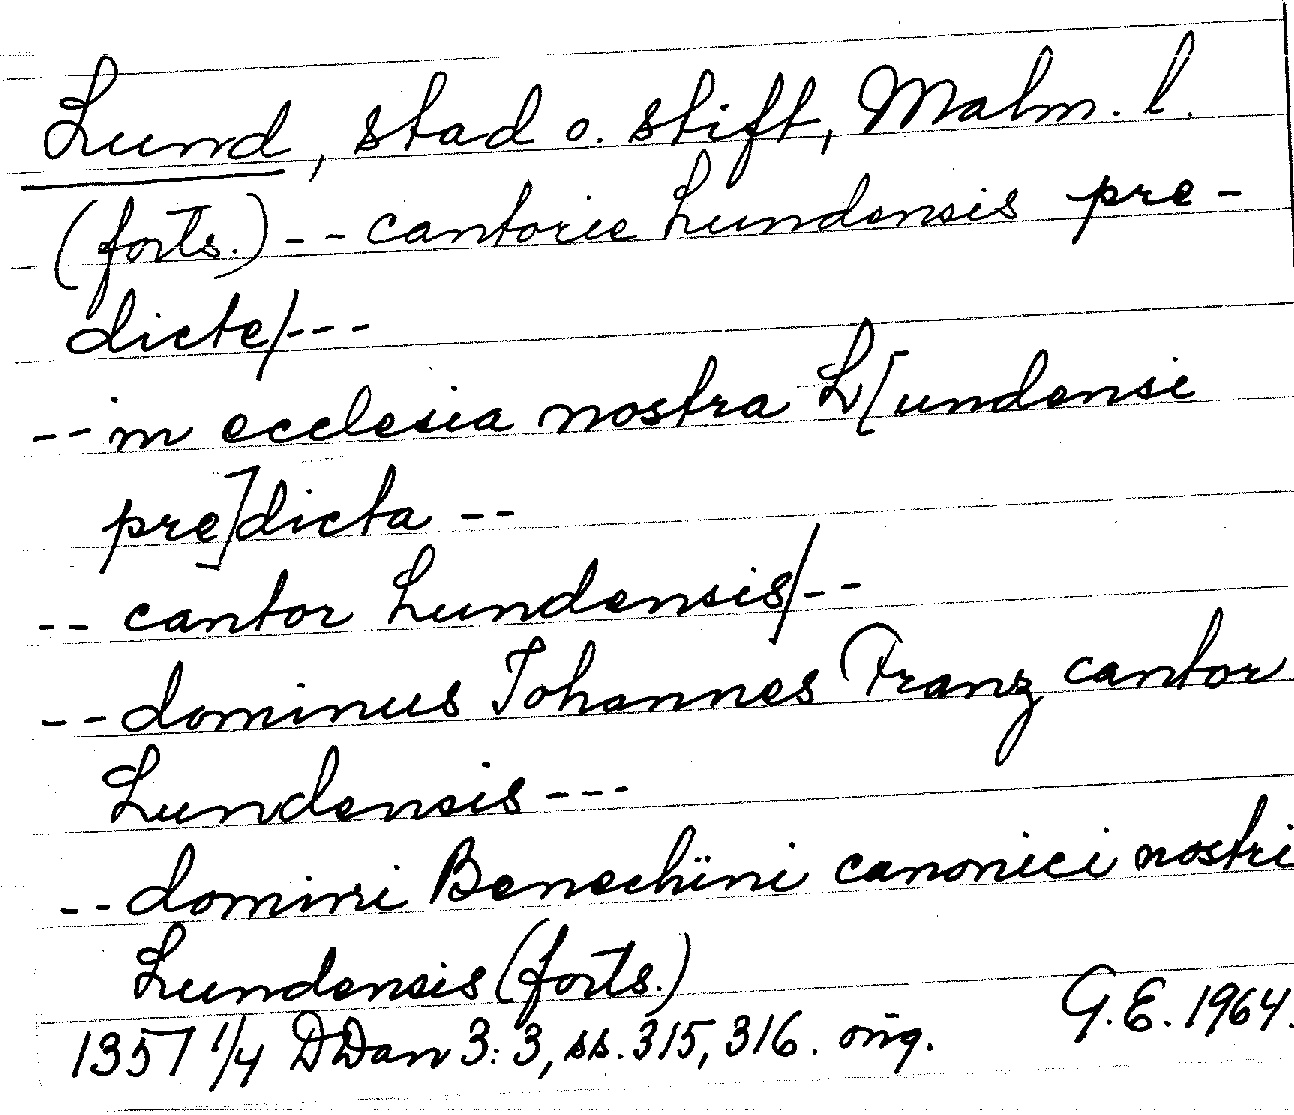 Lund, stad o. stift, Malm. l.
(forts.) -- cantorie Lundensis pre-
dicte/---
-- in ecclesia nostra L[undensi
pre]dicta --
-- cantor Lundensis/--
-- dominus Johannes Franz cantor
Lundensis ---
-- domini Benechini canonici nostri
Lundensis (forts.)
1357 1/4 DDan 3:3, ss. 315, 316. orig. G.E. 1964.